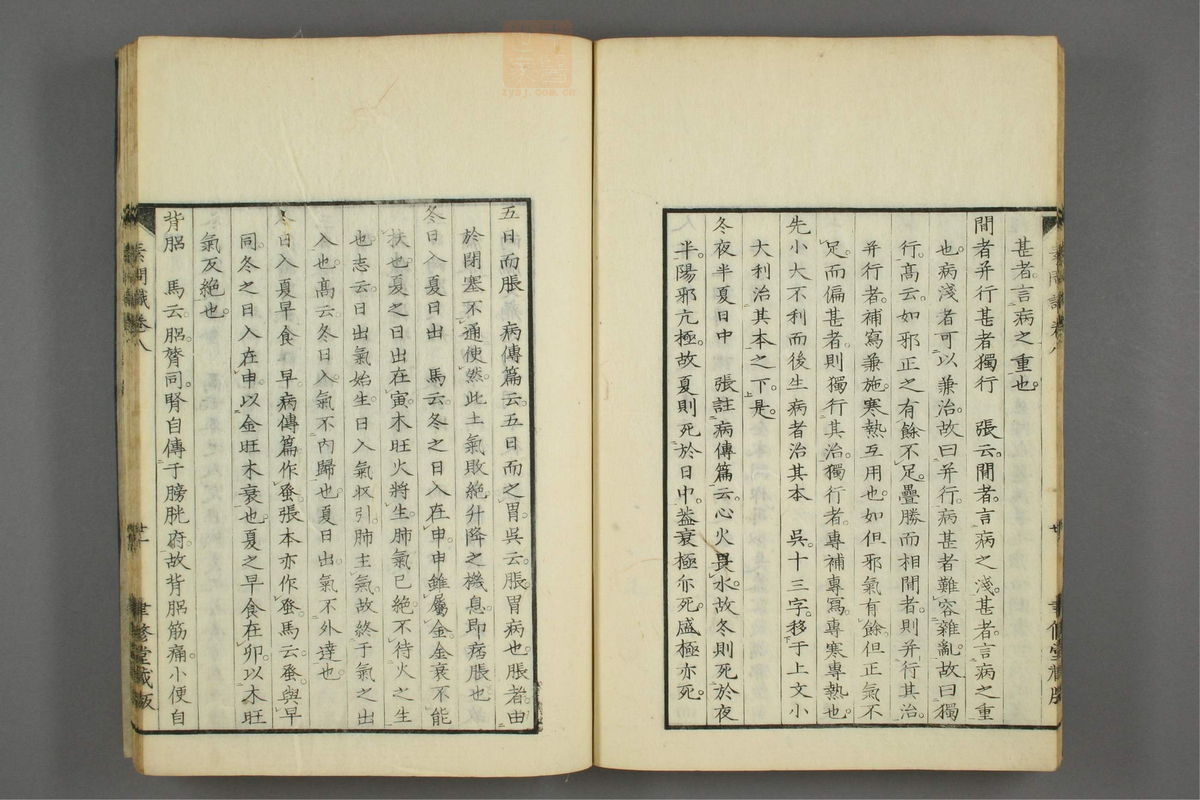 甚者言病之重也。
間者并行甚者獨行　張云間者。言病之淺。甚者。言病之重
也。病淺者。可以兼治。故曰并行。病甚者。難容雜亂。故曰獨
行。高云。如邪正之有餘不足。疊勝而相間者。則并行其治。
并行者。補寫兼施。寒熱互用也。如但邪氣有餘。但正氣不
足。而偏甚者。則獨行其治。獨行者。專補專寫。專寒專熱也。
先小大不利而後生病者治其本　吳十三字。移于上文小
大利治其本之下。是。
冬夜半夏日中　張註病傳篇云。心火畏水。故冬則死於夜
半。陽邪亢極。故夏則死於日中。蓋衰極亦死。盛極亦死。
五日而脹　病傳篇云。五日而之胃。吳云。脹。胃病也。脹者。由
於閉塞不通使然。此土氣敗絕。升降之機息。即痞脹也
冬日入夏日出　馬云。冬之日入在申。申雖屬金。金衰不能
扶也。夏之日出在寅。木旺火將生。肺氣已絕。不待火之生
也。志云。日出氣始生。日入氣收引。肺主氣。故終于氣之出
入也。高云。冬日入。氣不內歸也。夏日出。氣不外達也。
冬日入夏早食　早。病傳篇作蚤。張本亦作蚤。馬云。蚤與早
同。冬之日入在申。以金旺木衰也。夏之早食在卯。以木旺
氣反絕也。
背䏚　馬云。䏚膂同。腎自傳于膀胱府。故背䏚筋痛。小便自
素問識卷八
廿一
聿修堂藏版
zysj.com.cn